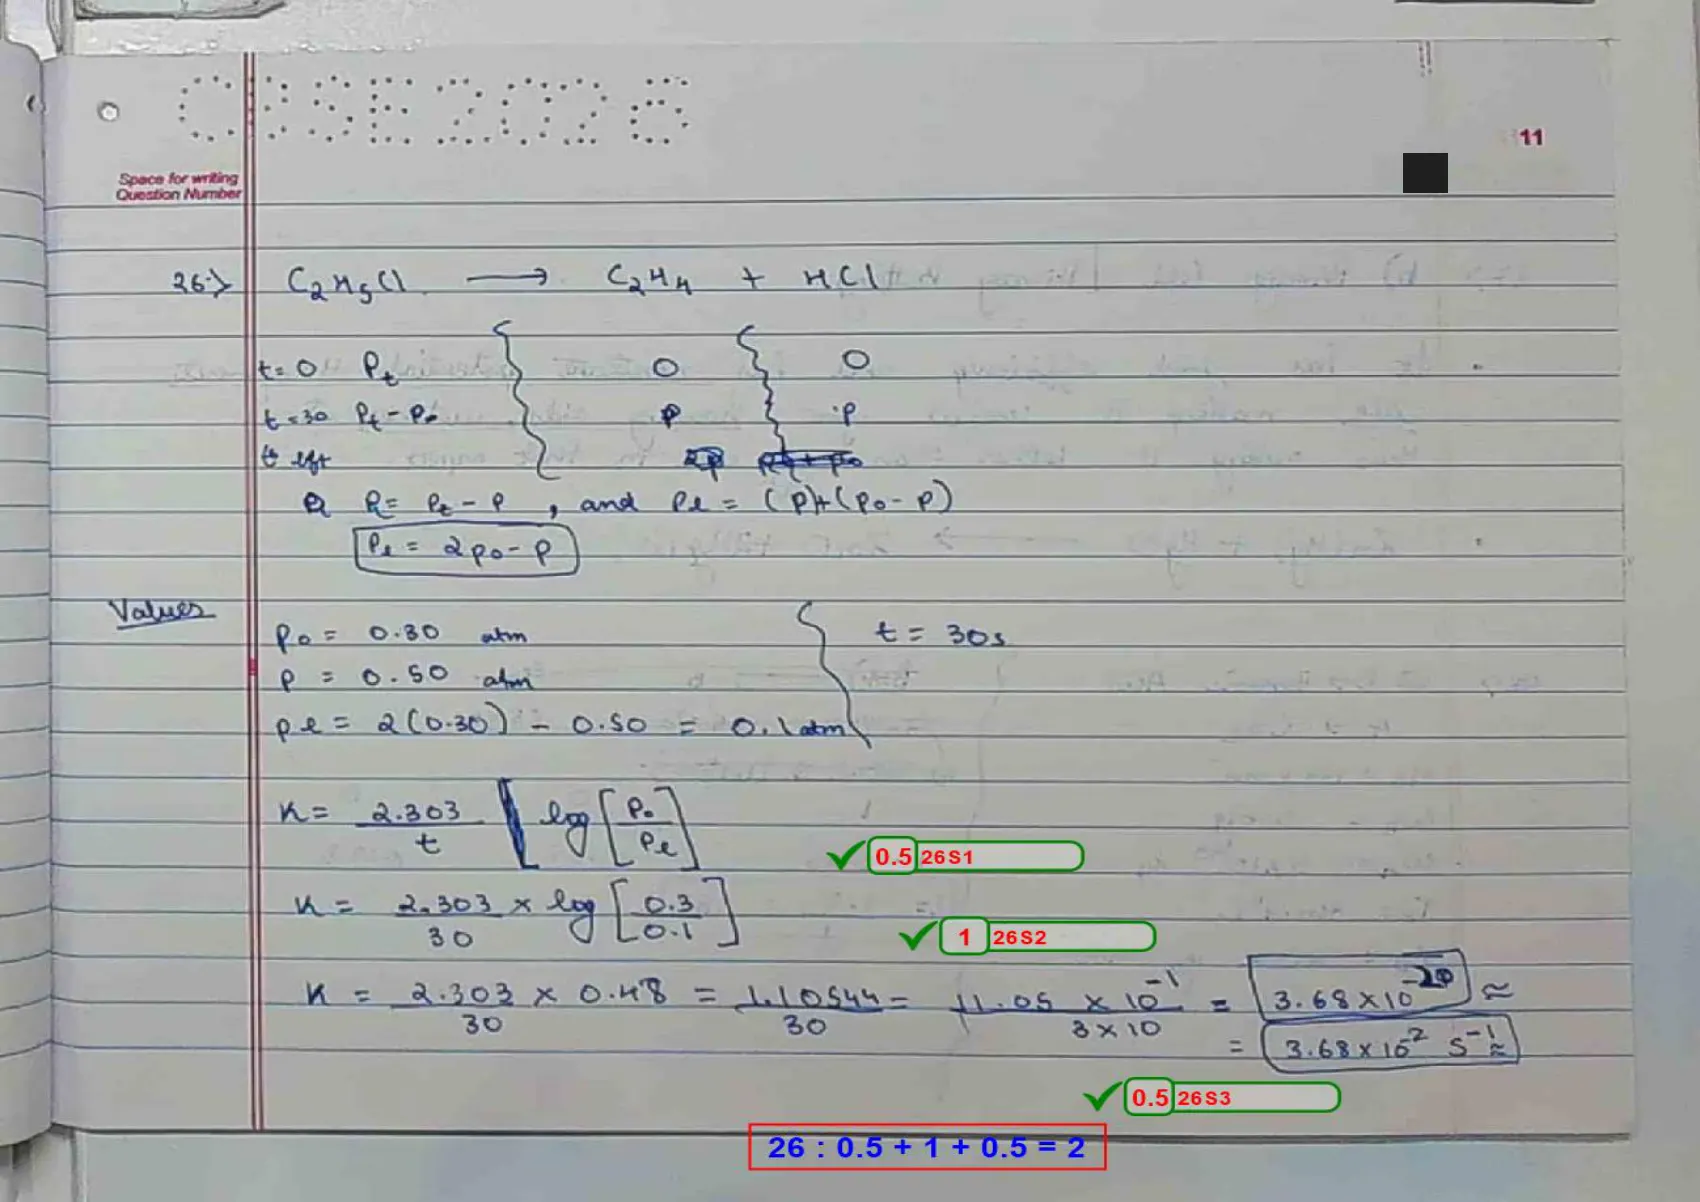 CBSE 2026
11
Space for writing
Question Number
26:> C2H5Cl ⟶ C2H4 + HCl
t=0 Pt 0 0
t=30 Pt - Po P P
t left 2p
R= Pt - P , and Pl = (P)+(Po - P)
Pl = 2po - p
Values
Po = 0.30 atm t = 30s
P = 0.50 atm
Pl = 2(0.30) - 0.50 = 0.1 atm
K = 2.303/t [log [Po/Pl]
0.5 26S1
K = 2.303/30 × log [0.3/0.1]
1 26S2
K = 2.303/30 × 0.48 = 1.10544/30 = 11.05 × 10^-1/3×10 = 3.68×10^-2 ≈
= 3.68×10^-2 s^-1 ≈
0.5 26S3
26 : 0.5 + 1 + 0.5 = 2